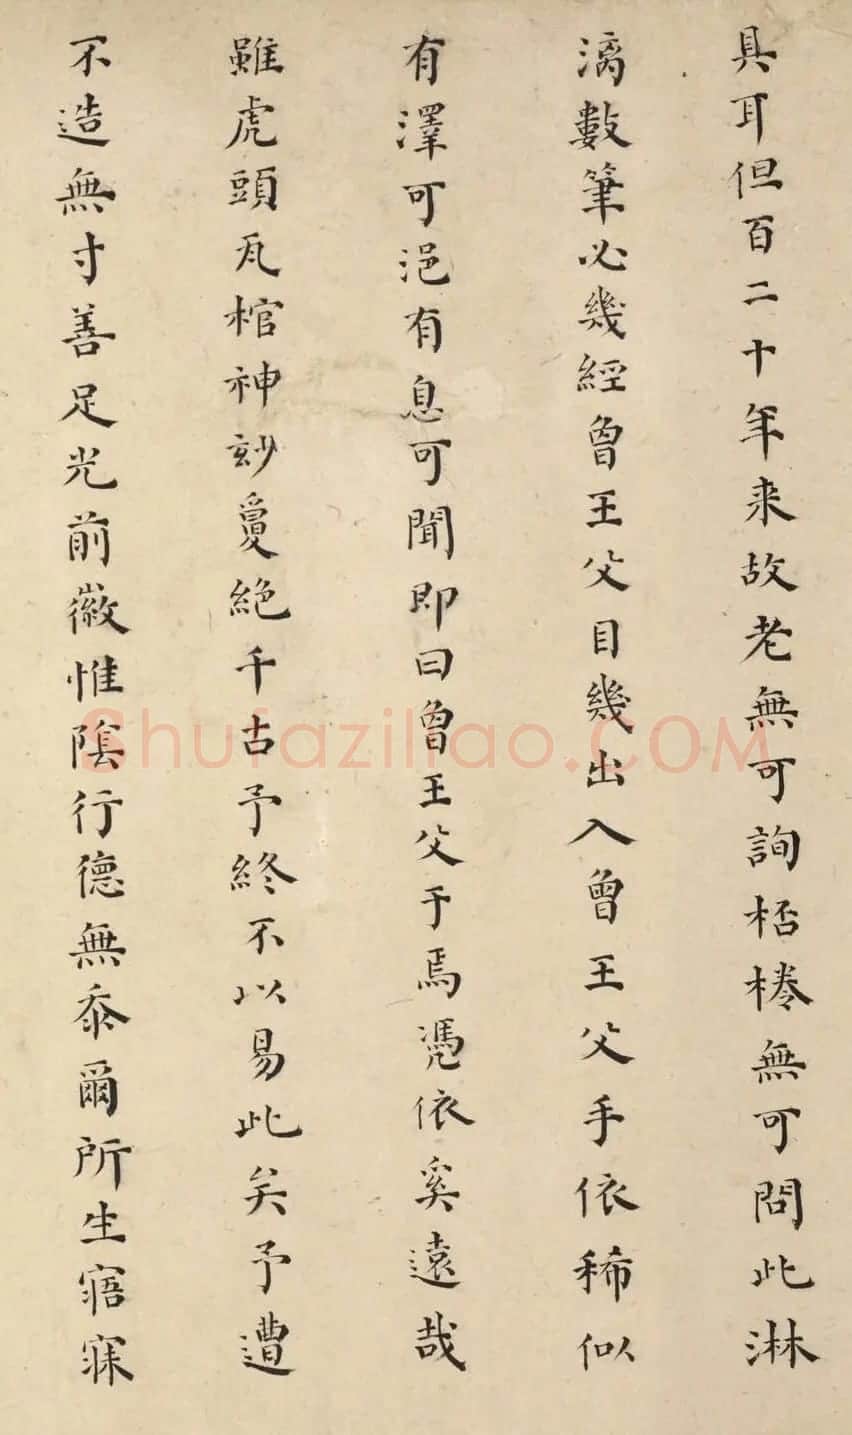 具耳但百二十年来故老無可詢桮棬無可問此淋
漓數筆必幾經曾王父目幾出入曾王父手依稀似
有澤可浥有息可聞即曰曾王父于焉憑依奚遠哉
雖虎頭瓦棺神玅敻絕千古予終不以易此矣予遭
不造無寸善足光前徽惟陰行德無忝爾所生寤寐
Shufaziliao.COM